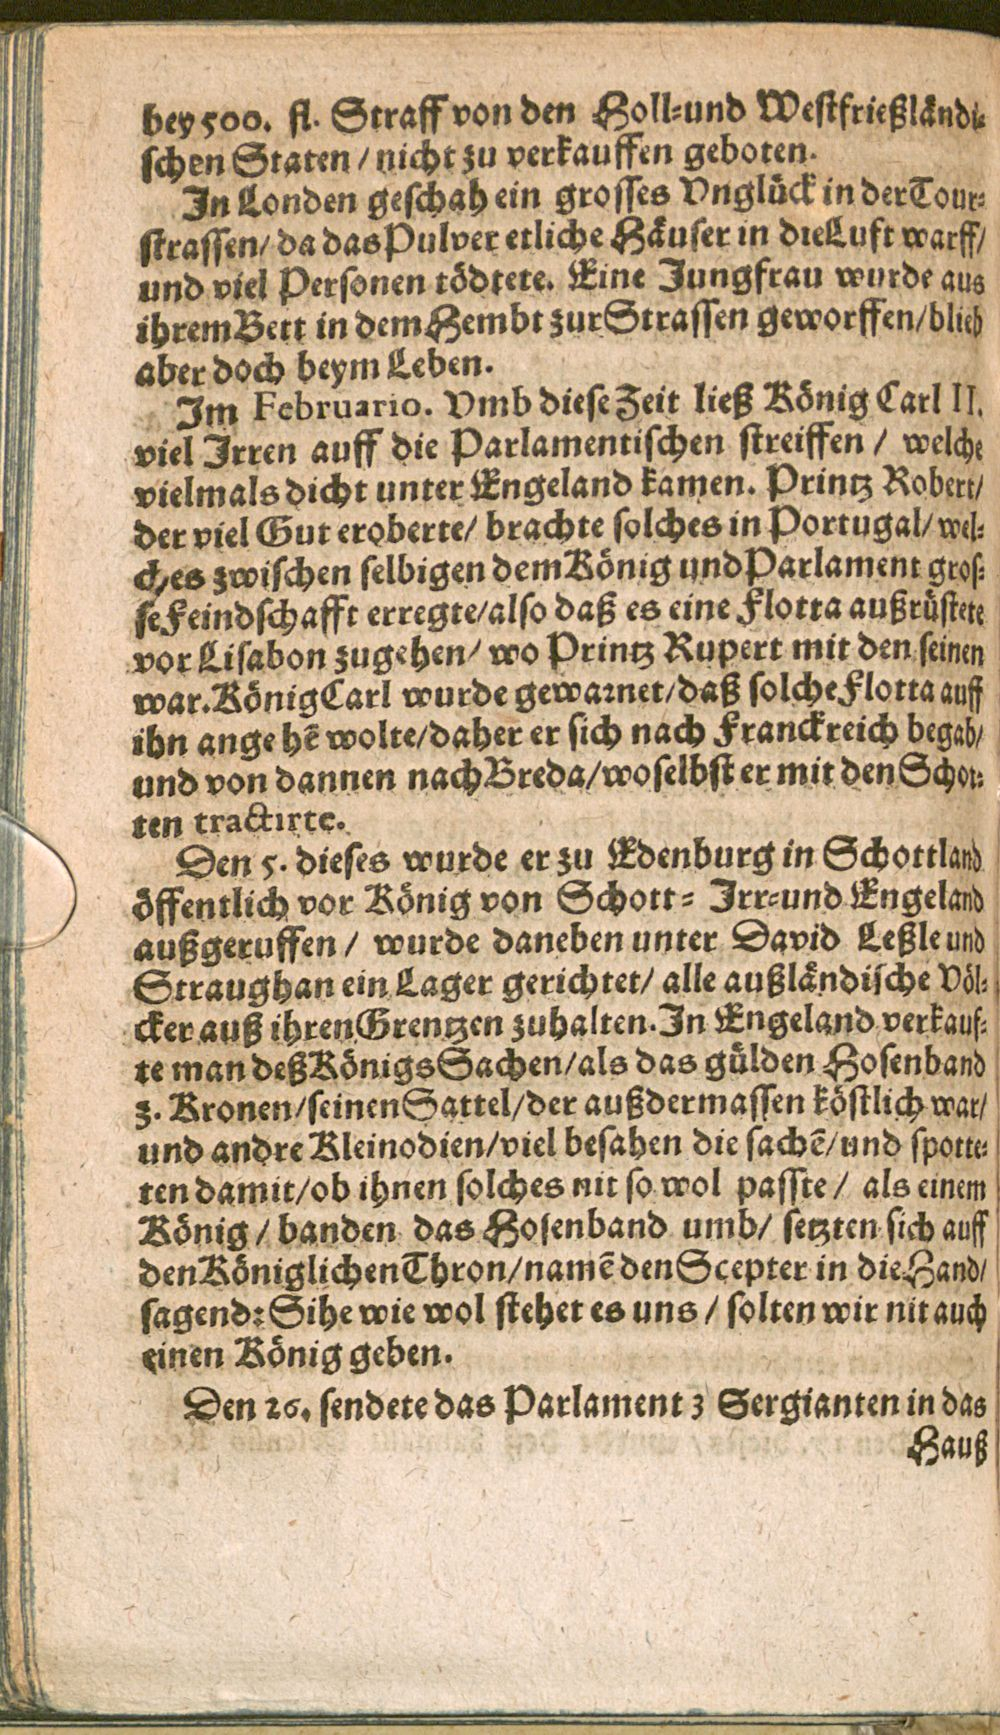 bey 500. fl. Straff von den Holl=und Westfrießländi=
schen Staten / nicht zu verkauffen geboten.
In Londen geschah ein grosses Vnglück in der Tour=
strassen/ da das Pulver etliche Häuser in die Luft warff/
und viel Personen tödtete. Eine Jungfrau wurde aus
ihrem Bett in dem Hembt zur Strassen geworffen/ blieb
aber doch beym Leben.
Im Februario. Vmb diese Zeit ließ König Carl II.
viel Irren auff die Parlamentischen streiffen / welche
vielmals dicht unter Engeland kamen. Printz Robert/
der viel Gut eroberte/ brachte solches in Portugal/ wel=
ches zwischen selbigen dem König und Parlament gros=
se Feindschafft erregte/also daß es eine Flotta außrüstete
vor Lisabon zugehen/ wo Printz Rupert mit den seinen
war. König Carl wurde gewarnet/daß solche Flotta auff
ihn angehē wolte/daher er sich nach Franckreich begab/
und von dannen nach Breda/woselbst er mit den Schot=
ten tractirte.
Den 5. dieses wurde er zu Edenburg in Schottland
öffentlich vor König von Schott= Irr=und Engeland
außgeruffen / wurde daneben unter David Leßle und
Straughan ein Lager gerichtet/ alle außländische Völ=
cker auß ihren Grentzen zuhalten. In Engeland verkauf=
te man deß Königs Sachen/als das gülden Hosenband
3. Kronen/seinen Sattel/der außdermassen köstlich war/
und andre Kleinodien/viel besahen die sachē/und spotte=
ten damit/ob ihnen solches nit so wol passte / als einem
König / banden das Hosenband umb/ setzten sich auff
den Königlichen Thron/namē den Scepter in die Hand/
sagend: Sihe wie wol stehet es uns / solten wir nit auch
einen König geben.
Den 26. sendete das Parlament 3 Sergianten in das
Hauß